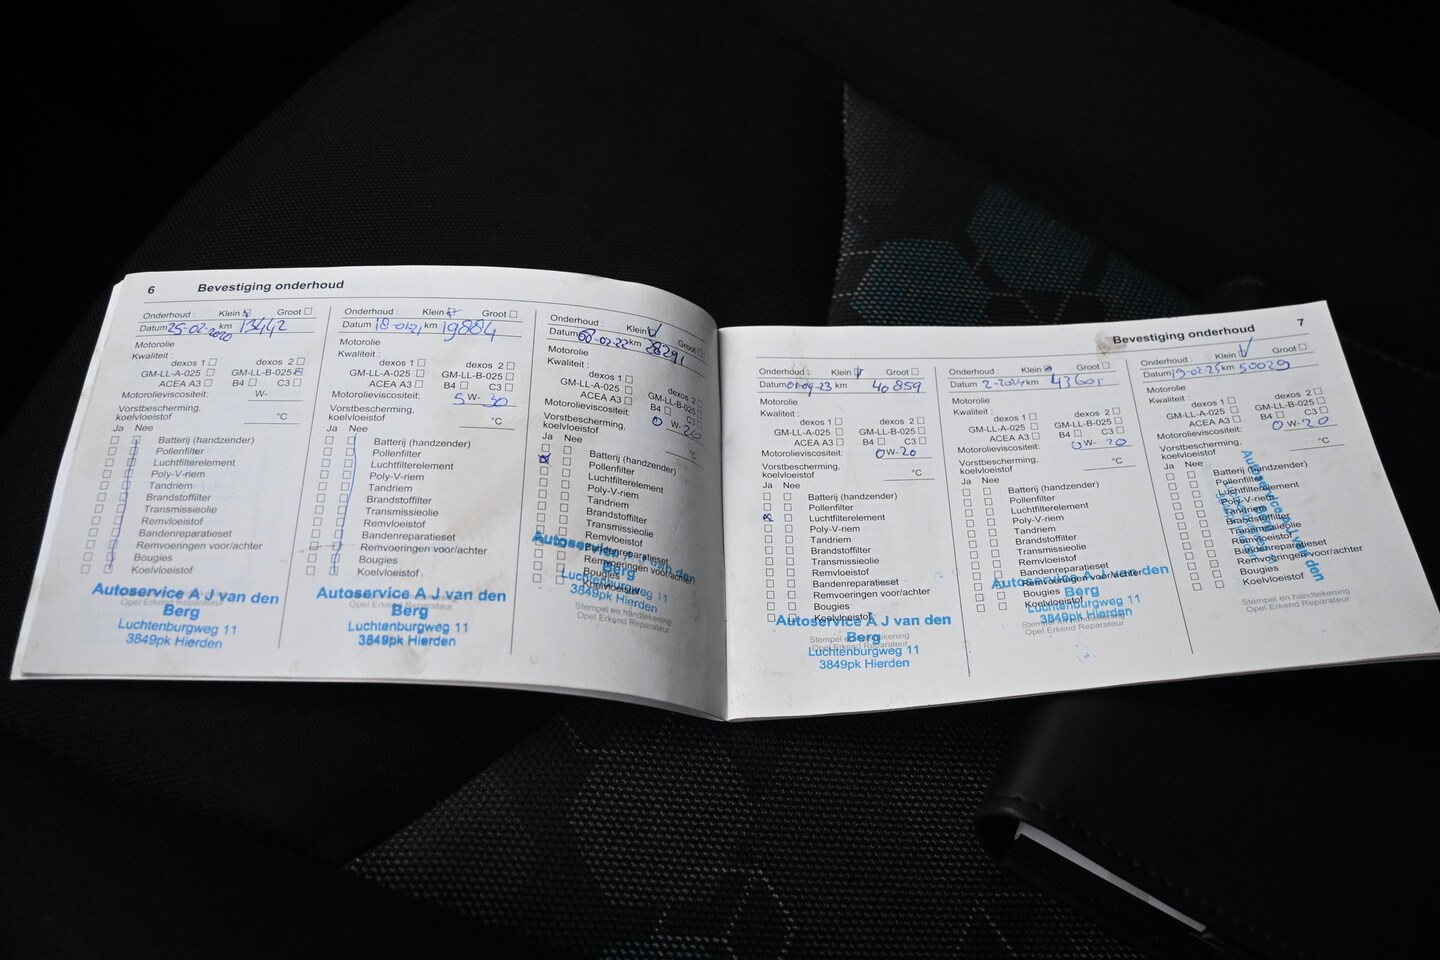 6 Bevestiging onderhoud
Onderhoud : Klein Groot
Datum 25-02-2020 km 13442
Motorolie
Kwaliteit :
dexos 1 dexos 2
GM-LL-A-025 GM-LL-B-025
ACEA A3 B4 C3
Motorolieviscositeit: W-
Vorstbescherming,
koelvloeistof °C
Ja Nee
Batterij (handzender)
Pollenfilter
Luchtfilterelement
Poly-V-riem
Tandriem
Brandstoffilter
Transmissieolie
Remvloeistof
Bandenreparatieset
Remvoeringen voor/achter
Bougies
Koelvloeistof
Autoservice A J van den
Berg
Luchtenburgweg 11
3849pk Hierden
Opel Erkend Reparateur
Onderhoud : Klein Groot
Datum 18-01-21 km 19884
Motorolie
Kwaliteit :
dexos 1 dexos 2
GM-LL-A-025 GM-LL-B-025
ACEA A3 B4 C3
Motorolieviscositeit: 5 W- 30
Vorstbescherming,
koelvloeistof °C
Ja Nee
Batterij (handzender)
Pollenfilter
Luchtfilterelement
Poly-V-riem
Tandriem
Brandstoffilter
Transmissieolie
Remvloeistof
Bandenreparatieset
Remvoeringen voor/achter
Bougies
Koelvloeistof
Autoservice A J van den
Berg
Luchtenburgweg 11
3849pk Hierden
Opel Erkend Reparateur
Onderhoud : Klein Groot
Datum 08-02-22 km 28291
Motorolie
Kwaliteit :
dexos 1 dexos 2
GM-LL-A-025 GM-LL-B-025
ACEA A3 B4 C3
Motorolieviscositeit: 0 W- 20
Vorstbescherming,
koelvloeistof °C
Ja Nee
Batterij (handzender)
Pollenfilter
Luchtfilterelement
Poly-V-riem
Tandriem
Brandstoffilter
Transmissieolie
Remvloeistof
Bandenreparatieset
Remvoeringen voor/achter
Bougies
Koelvloeistof
Autoservice A J van den
Berg
Luchtenburgweg 11
3849pk Hierden
Stempel en handtekening
Opel Erkend Reparateur
Bevestiging onderhoud 7
Onderhoud : Klein Groot
Datum 01-09-23 km 40859
Motorolie
Kwaliteit :
dexos 1 dexos 2
GM-LL-A-025 GM-LL-B-025
ACEA A3 B4 C3
Motorolieviscositeit: 0 W- 20
Vorstbescherming,
koelvloeistof °C
Ja Nee
Batterij (handzender)
Pollenfilter
Luchtfilterelement
Poly-V-riem
Tandriem
Brandstoffilter
Transmissieolie
Remvloeistof
Bandenreparatieset
Remvoeringen voor/achter
Bougies
Koelvloeistof
Autoservice A J van den
Berg
Luchtenburgweg 11
3849pk Hierden
Stempel en handtekening
Opel Erkend Reparateur
Onderhoud : Klein Groot
Datum 2-2024 km 43601
Motorolie
Kwaliteit :
dexos 1 dexos 2
GM-LL-A-025 GM-LL-B-025
ACEA A3 B4 C3
Motorolieviscositeit: 0 W- 20
Vorstbescherming,
koelvloeistof °C
Ja Nee
Batterij (handzender)
Pollenfilter
Luchtfilterelement
Poly-V-riem
Tandriem
Brandstoffilter
Transmissieolie
Remvloeistof
Bandenreparatieset
Remvoeringen voor/achter
Bougies
Koelvloeistof
Autoservice A J van den
Berg
Luchtenburgweg 11
3849pk Hierden
Stempel en handtekening
Opel Erkend Reparateur
Onderhoud : Klein Groot
Datum 19-02-25 km 50029
Motorolie
Kwaliteit :
dexos 1 dexos 2
GM-LL-A-025 GM-LL-B-025
ACEA A3 B4 C3
Motorolieviscositeit: 0 W- 20
Vorstbescherming,
koelvloeistof °C
Ja Nee
Batterij (handzender)
Pollenfilter
Luchtfilterelement
Poly-V-riem
Tandriem
Brandstoffilter
Transmissieolie
Remvloeistof
Bandenreparatieset
Remvoeringen voor/achter
Bougies
Koelvloeistof
Autoservice A J van den
Berg
Stempel en handtekening
Opel Erkend Reparateur